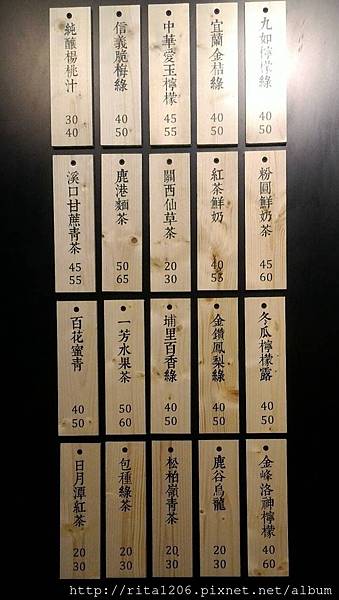 九如檸檬綠
40
50
宜蘭金桔綠
40
50
中華愛玉檸檬
45
55
信義脆梅綠
40
50
純釀楊桃汁
30
40
粉圓鮮奶茶
45
60
紅茶鮮奶
40
55
關西仙草茶
20
30
鹿港麵茶
50
65
溪口甘蔗青茶
45
55
冬瓜檸檬露
40
50
金鑽鳳梨綠
40
50
埔里百香綠
40
50
一芳水果茶
50
60
百花蜜青
40
50
金峰洛神檸檬
40
60
鹿谷烏龍
20
30
松柏嶺青茶
20
30
包種綠茶
20
30
日月潭紅茶
20
30
http://rita1206.pixnet.net/album